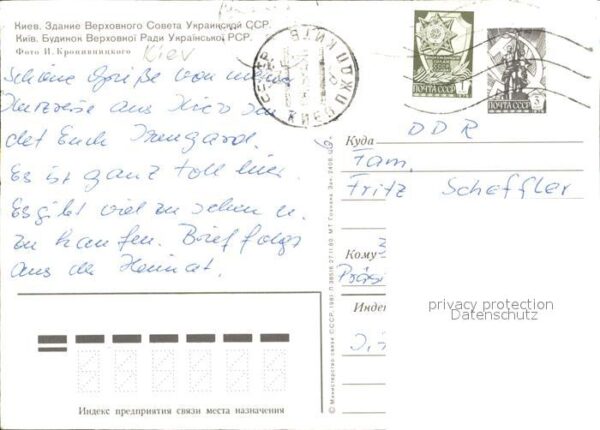 Киев. Здание Верховного Совета Украинской ССР.
Київ. Будинок Верховної Ради Української РСР.
Фото И. Кропивницкого
Kiev
Schöne Grüße von meiner
Kurzreise aus Kiew sen
det Euch Irmgard.
Es ist ganz toll hier.
Es gibt viel zu sehen u.
zu kaufen. Brief folgt
aus der Heimat.
ПОЧТА СССР
ПОЧТА СССР
КИЕВ
Куда
DDR
Fam.
Fritz Scheffler
Кому
Präsi
Индекс
privacy protection
Datenschutz
Индекс предприятия связи места назначения
© Министерство связи СССР, 1981